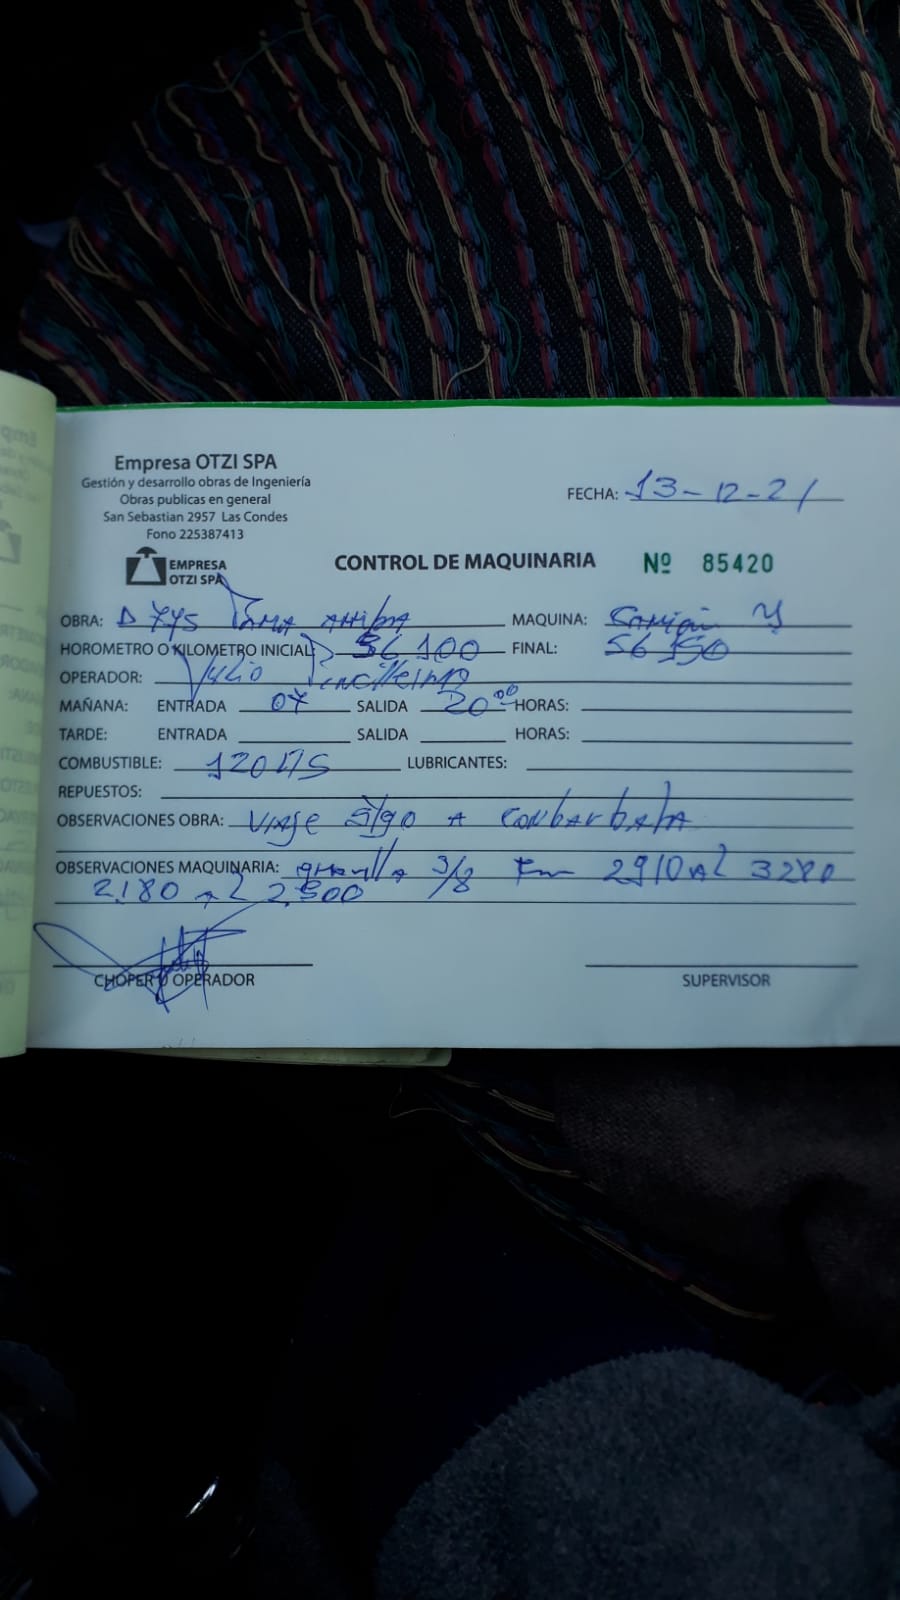 Empresa OTZI SPA
Gestión y desarrollo obras de Ingeniería
Obras publicas en general
San Sebastian 2957 Las Condes
Fono 225387413
FECHA: 13-12-21
EMPRESA
OTZI SPA
CONTROL DE MAQUINARIA Nº 85420
OBRA: D 775 MAQUINA: Camión
HOROMETRO O KILOMETRO INICIAL: 56100 FINAL: 56150
OPERADOR: Julio
MAÑANA: ENTRADA 07 SALIDA 20⁰⁰ HORAS:
TARDE: ENTRADA SALIDA HORAS:
COMBUSTIBLE: 120 lts LUBRICANTES:
REPUESTOS:
OBSERVACIONES OBRA: Viaje Stgo A Conbarbala
OBSERVACIONES MAQUINARIA: gravilla 3/8 Km 2910 al 3280
2.180 al 2.500
CHOFER U OPERADOR SUPERVISOR